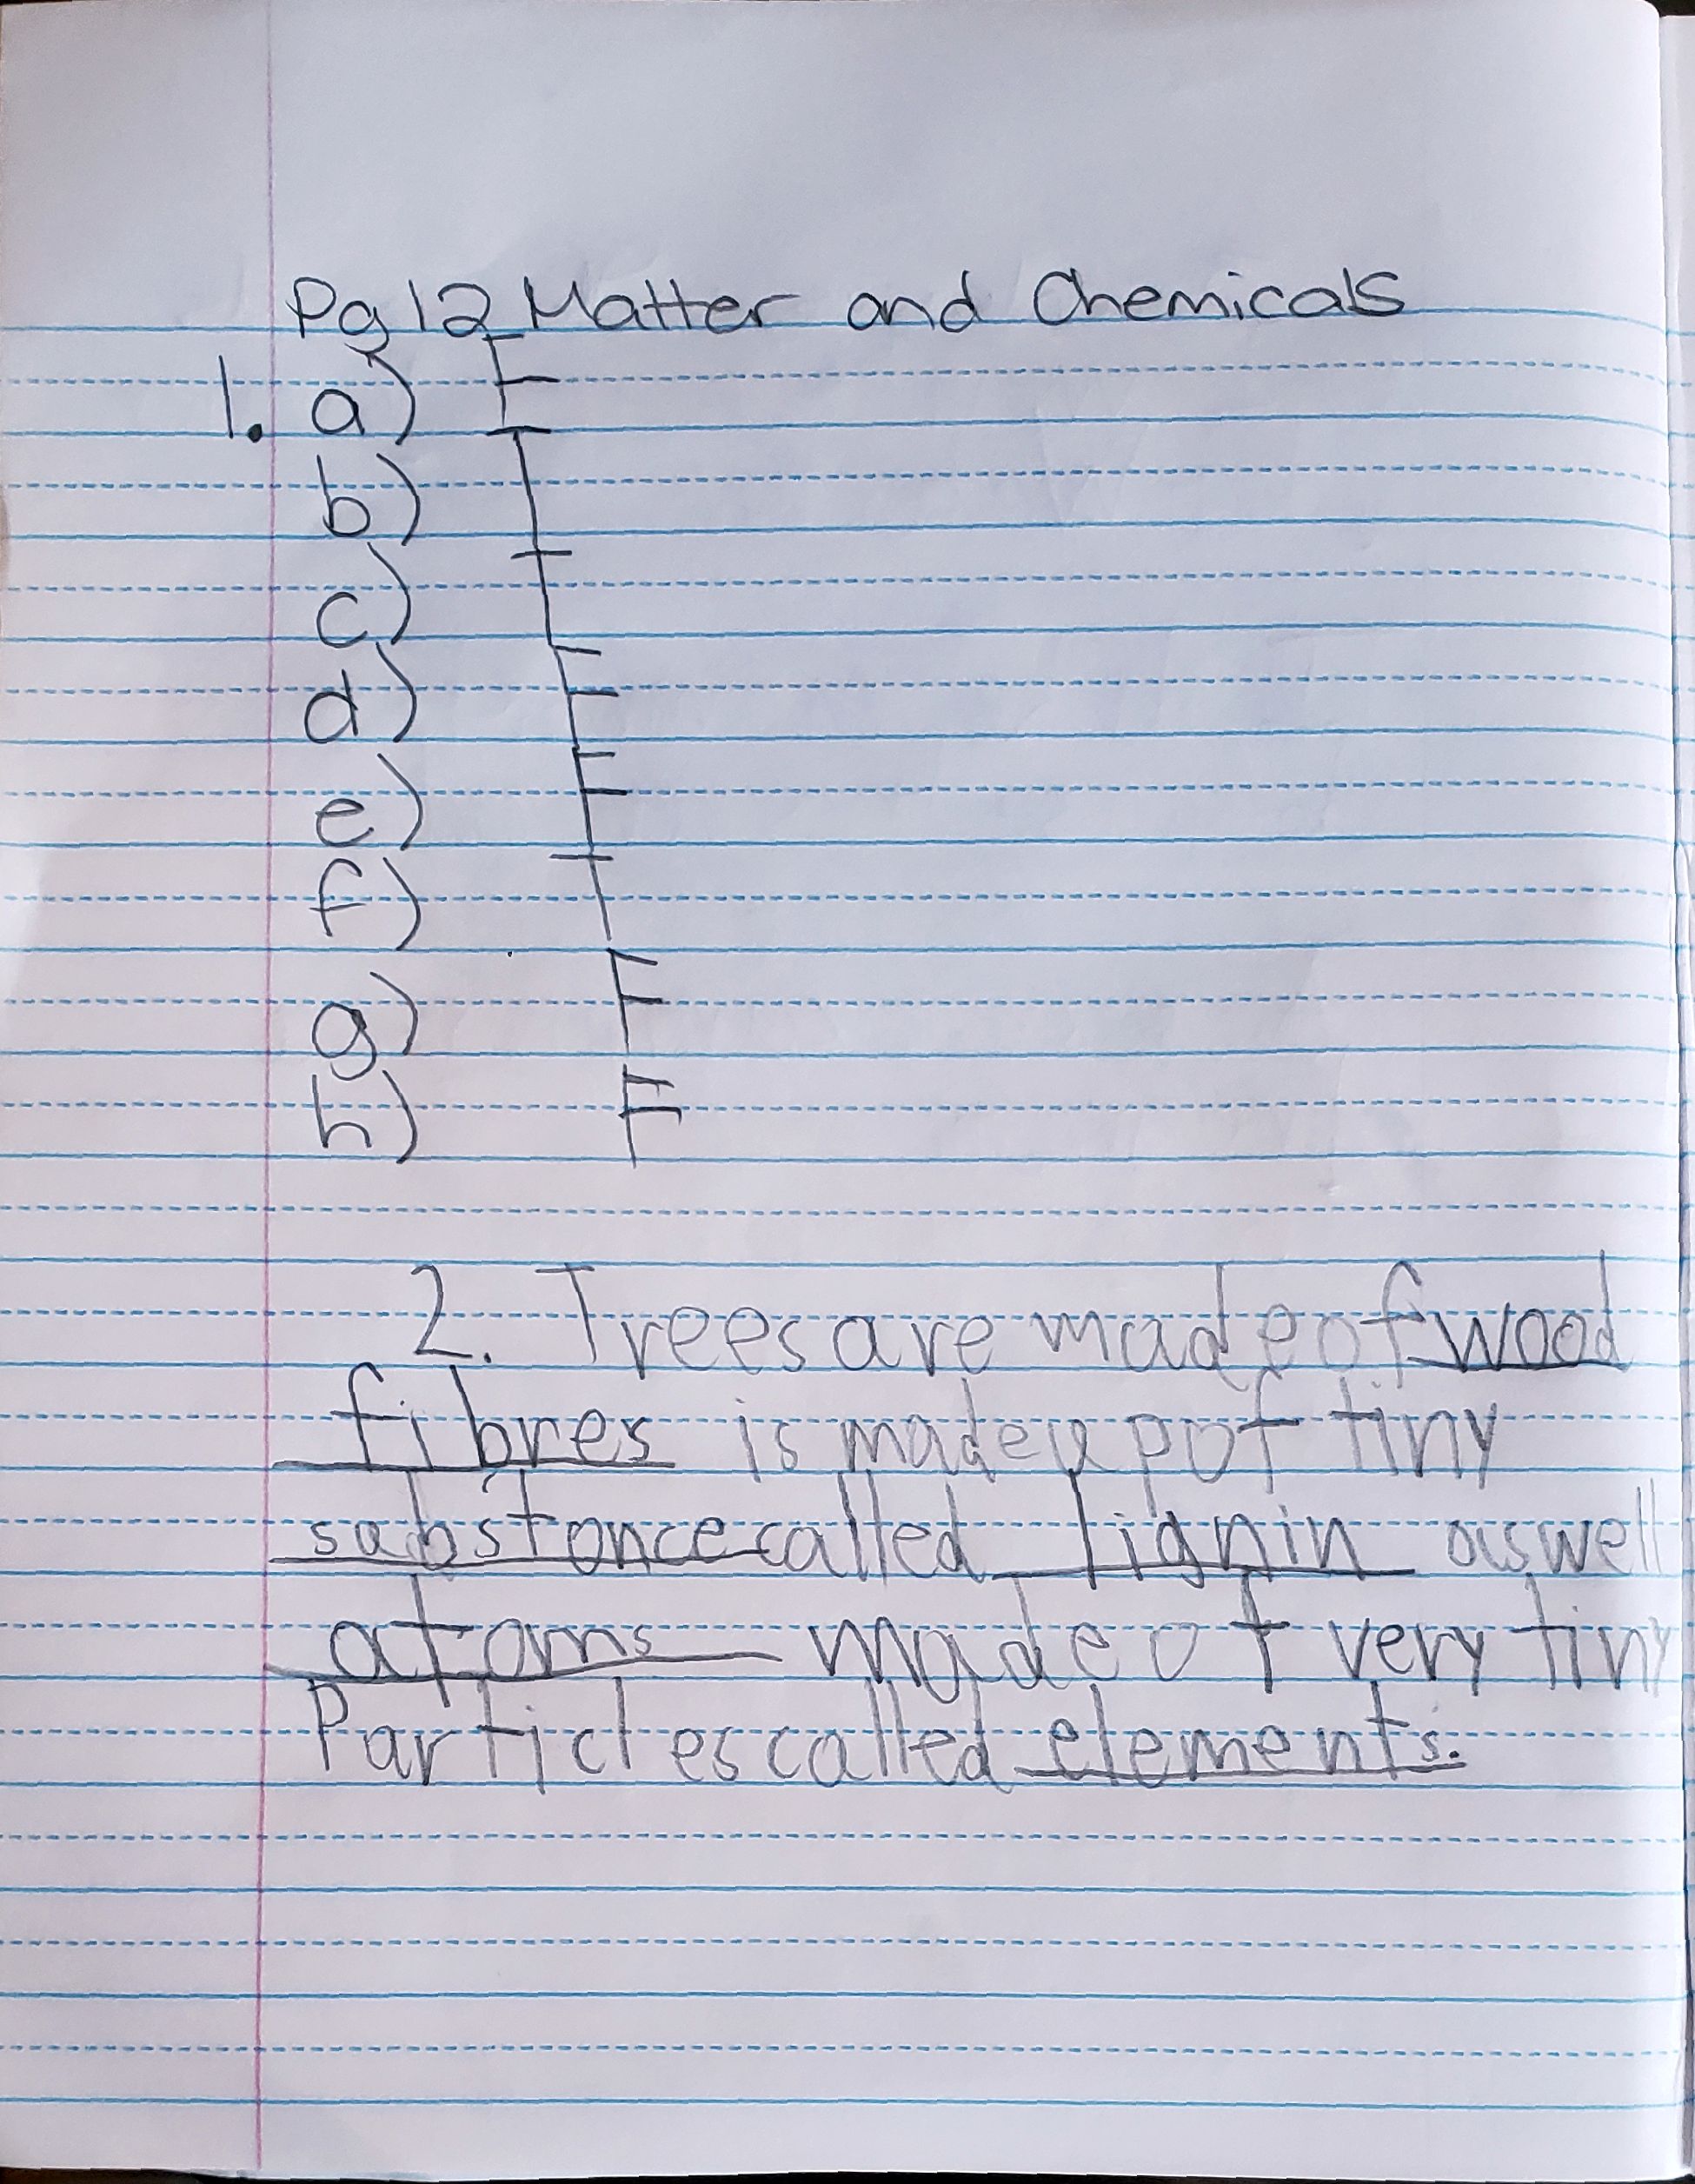 Pg 12 Matter and Chemicals
1. a) F
b) T
c) T
d) F
e) F
f) T
g) F
h) F
2. Trees are made of wood
fibres is made up of tiny
substance called lignin as well
atoms made of very tiny
Particles called elements.